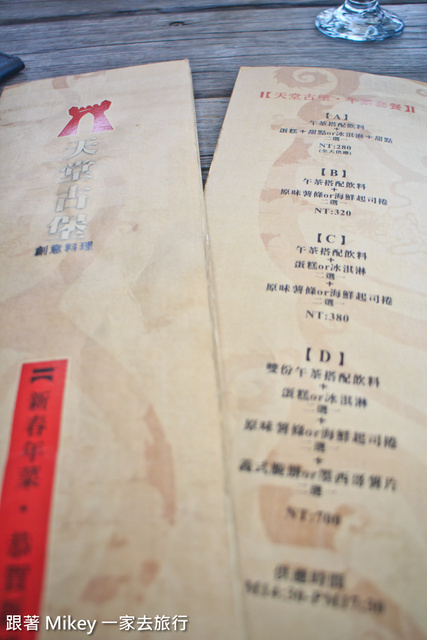 天堂古堡
創意料理
【新春年菜・恭賀
【天堂古堡・午茶套餐】
【A】
午茶搭配飲料
+
蛋糕+甜點or冰淇淋+甜點
二選一
NT:280
(全天供應)
【B】
午茶搭配飲料
+
原味薯條or海鮮起司捲
二選一
NT:320
【C】
午茶搭配飲料
+
蛋糕or冰淇淋
二選一
+
原味薯條or海鮮起司捲
二選一
NT:380
【D】
雙份午茶搭配飲料
+
蛋糕or冰淇淋
二選一
+
原味薯條or海鮮起司捲
二選一
+
義式脆餅or墨西哥薯片
二選一
NT:700
供應時間
跟著 Mikey 一家去旅行